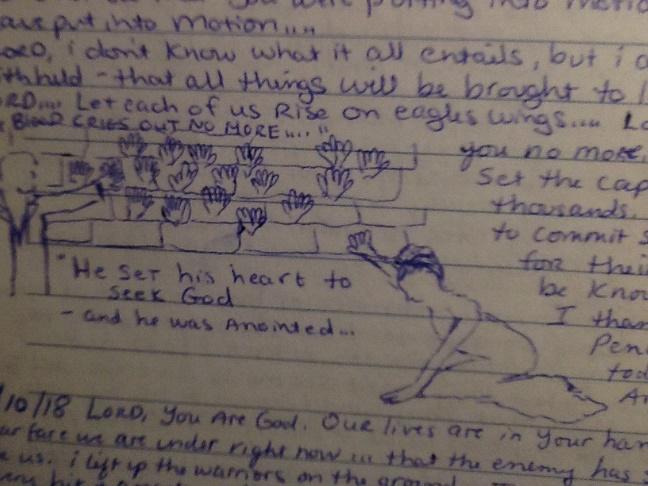 put into motion....
LORD, i don't know what it all entails, but i
withheld - that all things will be brought to
LORD.... Let each of us Rise on eagles wings....
Blood CRIES OUT NO MORE...."
you no more,
Set the cap
thousands.
to commit s
for their
be Know
"He set his heart to
seek God
- and he was Anointed...
I than
Pen
tod
/10/18 LORD, You Are God. Our lives are in Your han
we are under right now... that the enemy has s
us. i lift up the warriors on the ground